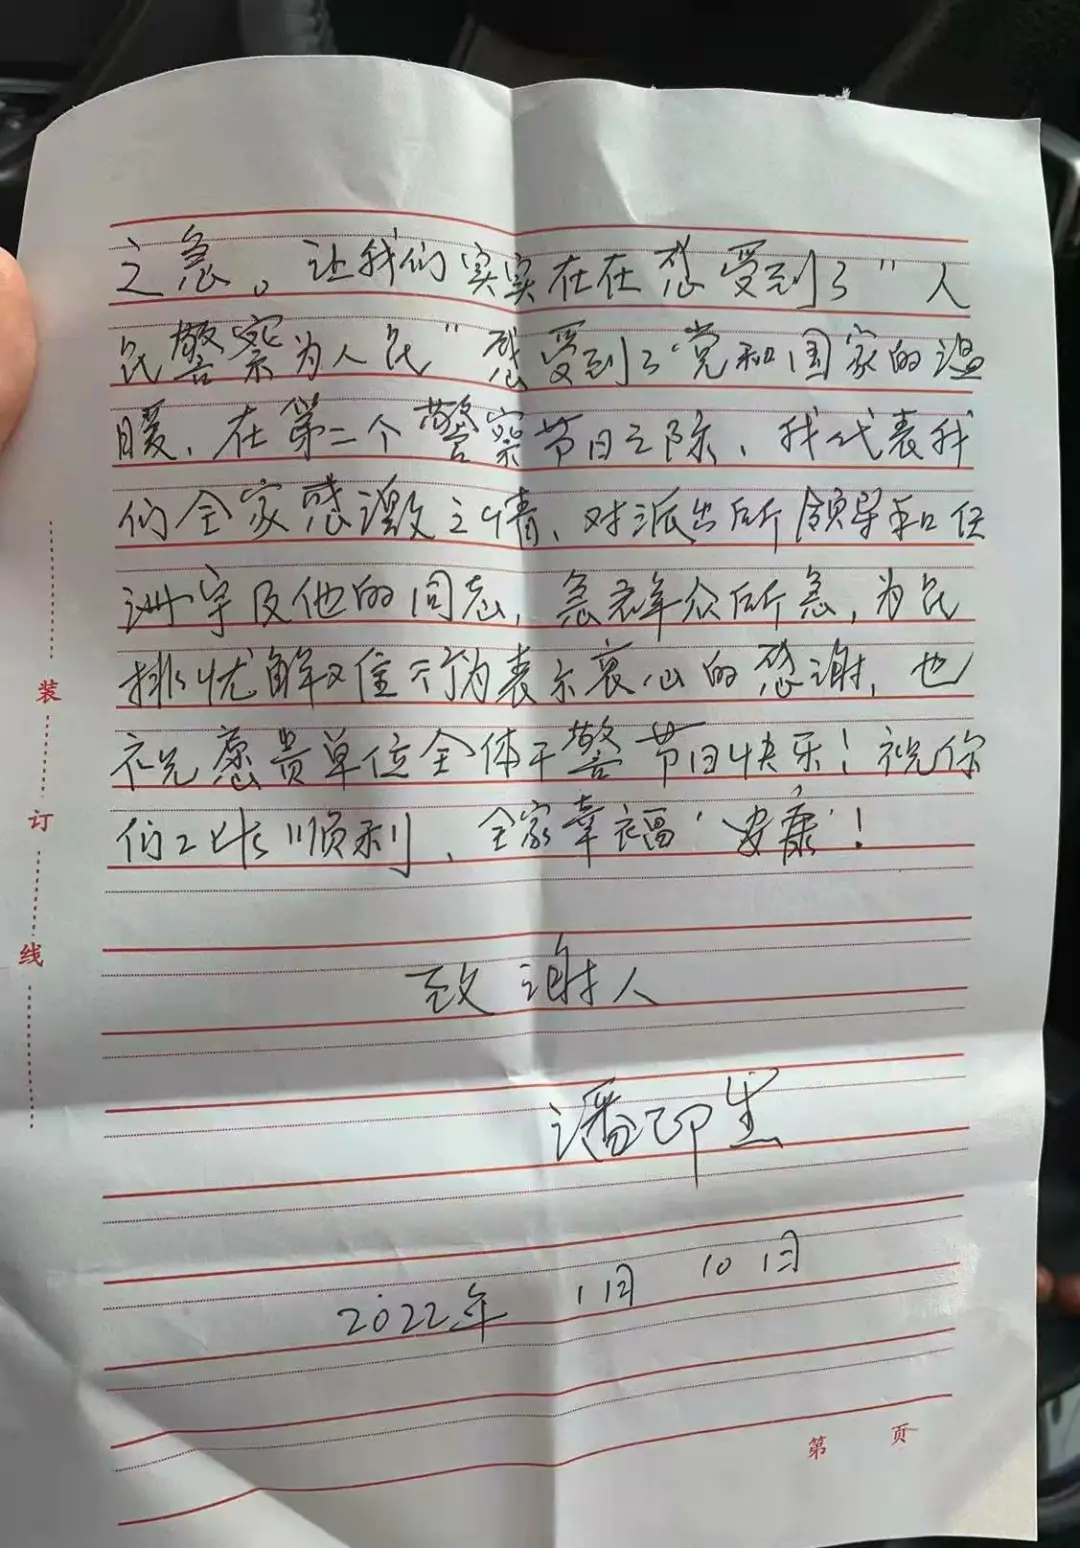 之急。让我们实实在在感受到了"人
民警察为人民"感受到了党和国家的温
暖、在第二个警察节日之际、我代表我
们全家感激之情、对派出所领导和任
洲宇及他的同志,急群众所急,为民
排忧解难行为表示衷心的感谢,也
祝愿贵单位全体干警节日快乐!祝你
们工作顺利、全家幸福'安康'!
致谢人
潘卫生
2022年 1月 10日
装
订
线
第 页